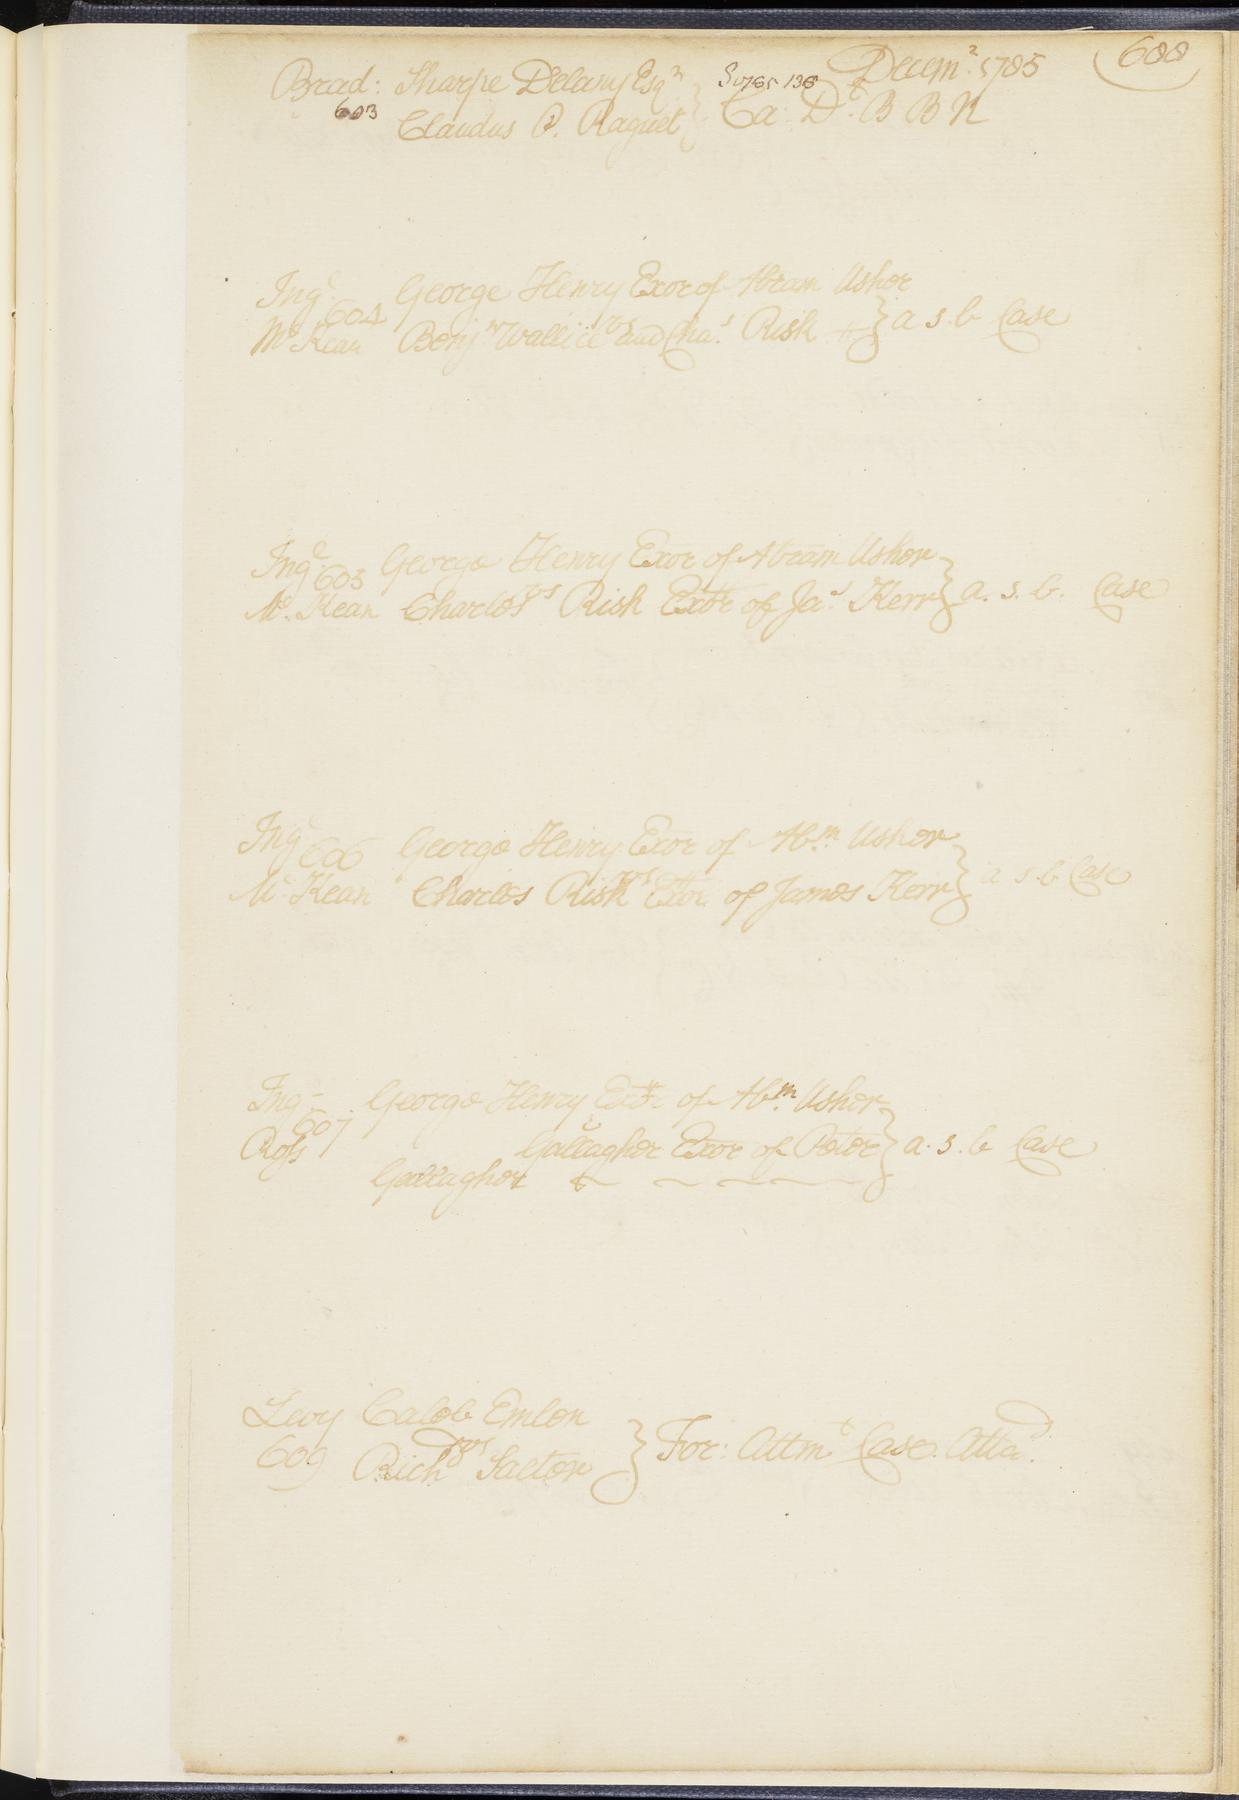 Decemr. 1785 688
Brad: Sharpe Delany Esqr
603 Claudus P. Raguet } Ca. Dt. B B N
Ingl. 604 George Henry Exor of Abram Usher
McKean Benjn Wallice vs and Chas. Risk } a s. b Case
Ingl 605 George Henry Exor of Abram Usher
Mc. Kean Charles vs Risk Exor of Jas. Kerr } a. s. b. Case
Ingl 606 George Henry Exor of Abm. Usher
Mc Kean Charles Risk vs Exor of James Kerr } a s b Case
Ing 607 George Henry Exor of Abm. Usher
Gallagher Exor of Peter } a. s. b Case
Gallagher
Levy Caleb Emlen
609 Richd vs Sacton } For: Attmt Case. Attad.